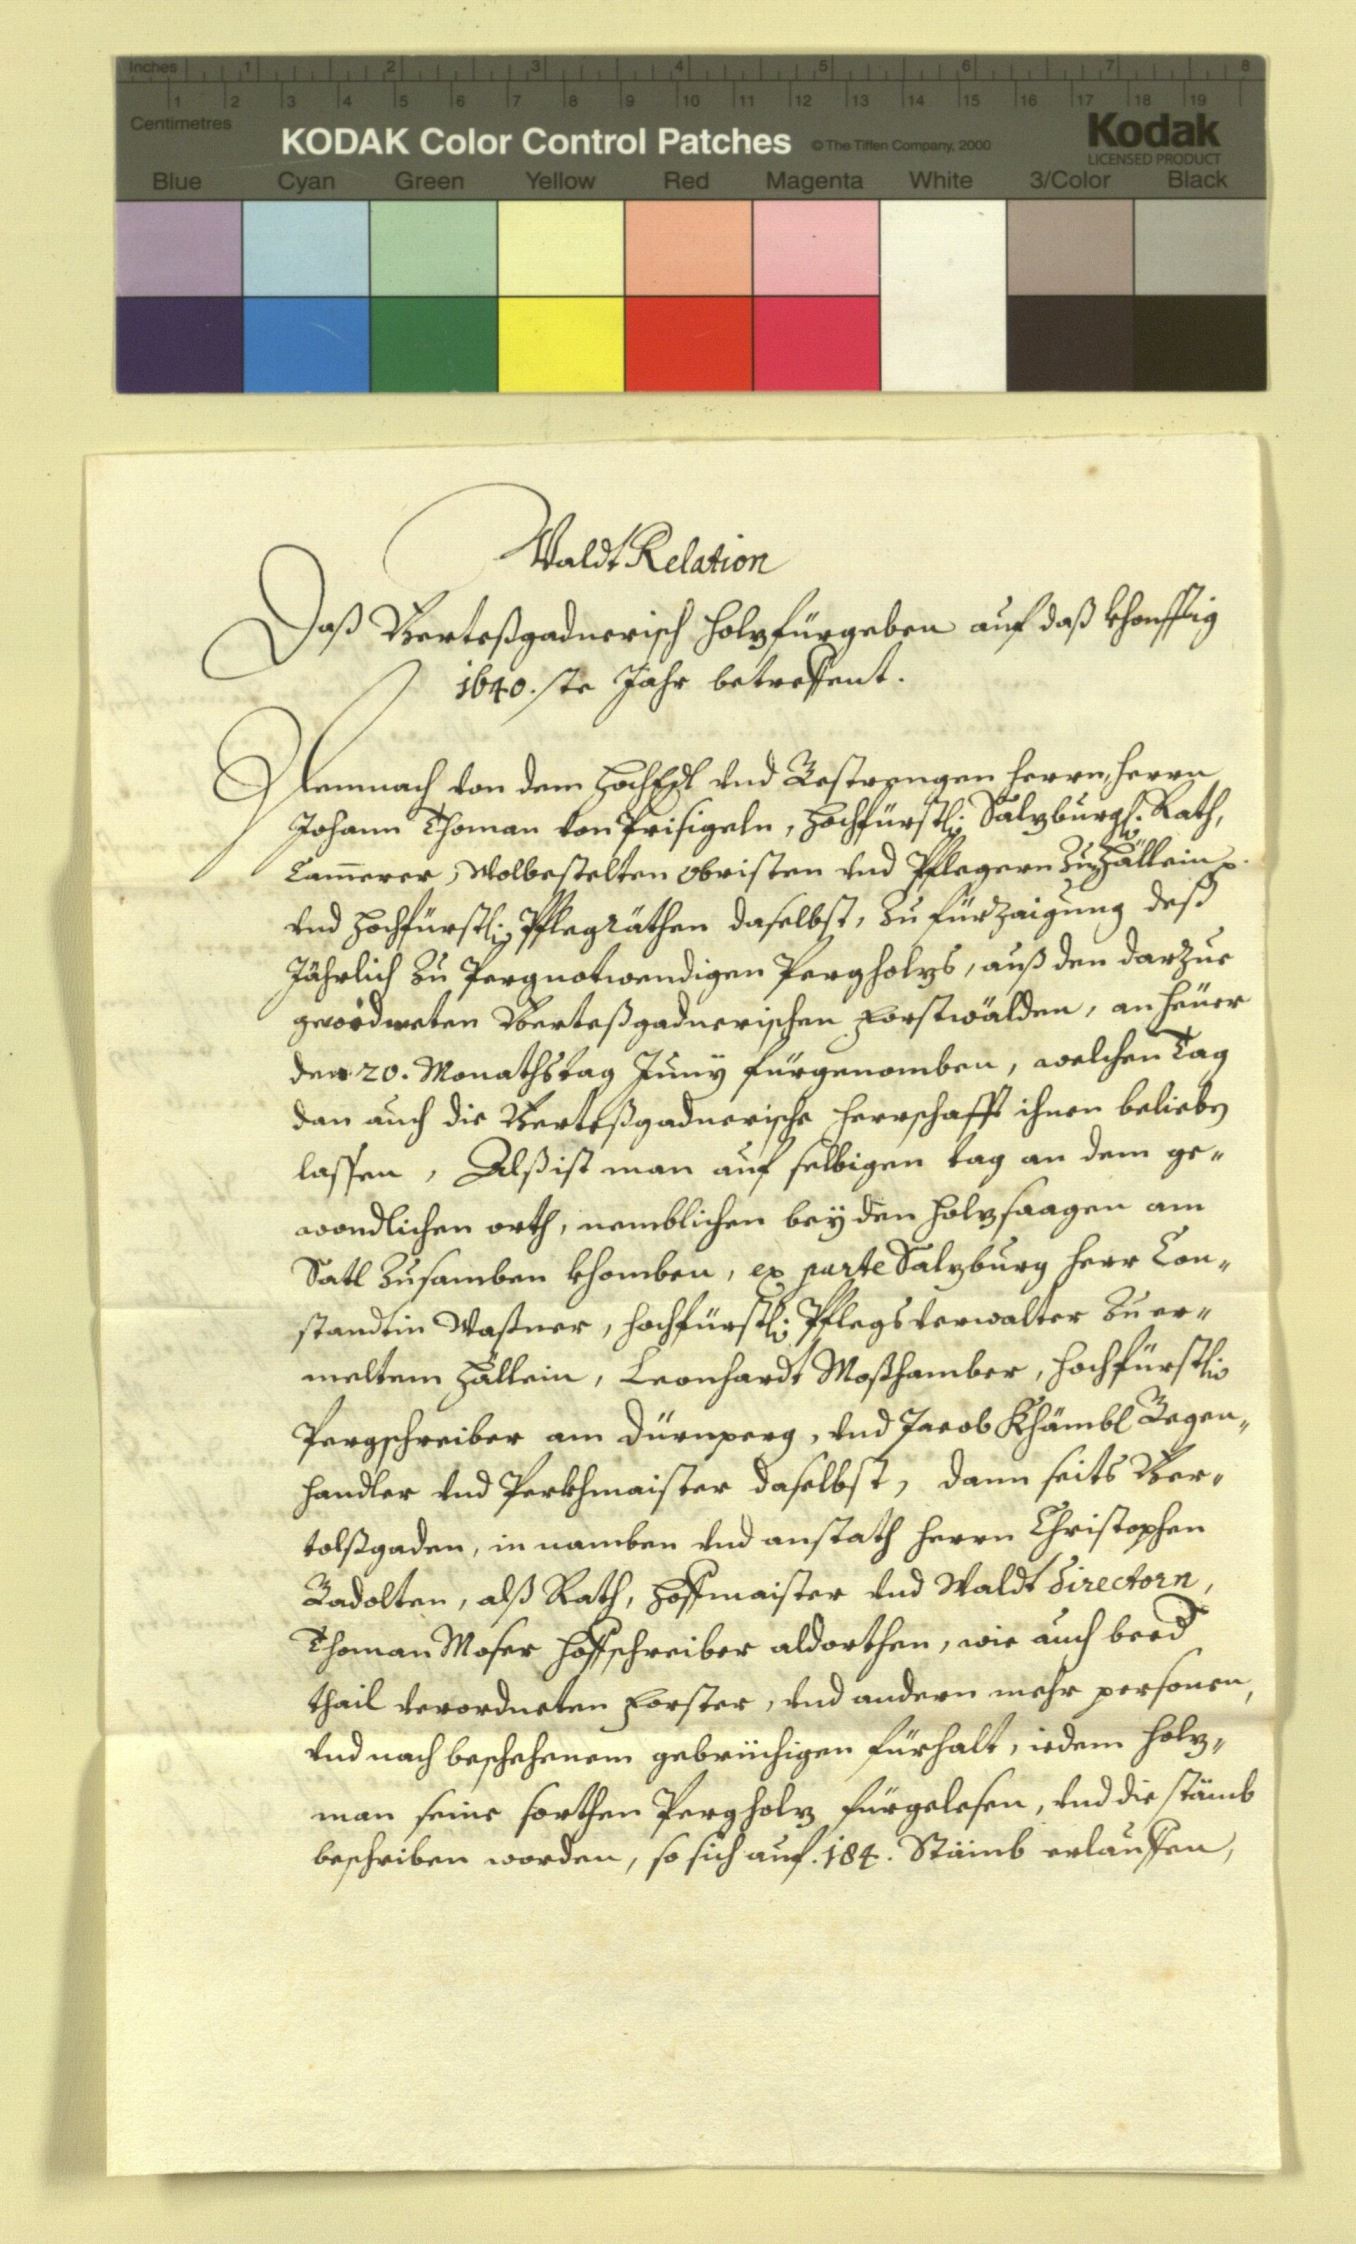 Inches 1 2 3 4 5 6 7 8
1 2 3 4 5 6 7 8 9 10 11 12 13 14 15 16 17 18 19
Centimetres
KODAK Color Control Patches © The Tiffen Company, 2000 Kodak
LICENSED PRODUCT
Blue Cyan Green Yellow Red Magenta White 3/Color Black
Waldt Relation
Daß Berteßgadnerisch holzfürgeben auf daß khonfftig
1640.ste Jahr betreffent.
Demnach von dem HochEdl vnd Gestrengen herrn, herrn
Johann Thoman von Prisigeln, Hochfürstl: Salzburgl. Rath,
Cam̅erer, Wolbestelten Obristen vnd Pflegern Zu Hällein
vnd Hochfürstl: Pflegräthen daselbst, Zu fürzaigung deß
Jährlich Zu Perg notwendigen Pergholzs, auß den darzue
geördneten Berteßgadnerischen Forstwälden, an heüer
den 20. Monathstag Juny fürgenomben, welchen Tag
dan auch die Berteßgadnerische herrschafft ihnen belieben
lassen, Alß ist man auf selbigen tag an dem ge-
wondlichen orth, nemblichen bey den holzsaagen am
Satl Zusamben khomben, ex parte Salzburg herr Con-
standtin Waßner, hochfürstl: Pflegsverwalter Zu er-
meltem Hällein, Leonhardt Moßhamber, hochfürstl:
Pergschreiber am Dürnperg, vnd Jacob Khämbl Gegen-
handler vnd Perkhmaister daselbst, dann seits Ber-
tolßgaden, in namben vnd anstath herrn Christophen
Radolten, alß Rath, Hoffmaister vnd Waldt Directorn,
Thoman Moser hoffschreiber aldorthen, wie auch beed
thail verordneten Forster, vnd andern mehr personen,
vnd nach beschehenem gebreüchigen fürhalt, iedem holz-
man seine sorthen Pergholz fürgelesen, vnd die stämb
beschriben worden, so sich auf. 184. Stämb erlauffen,